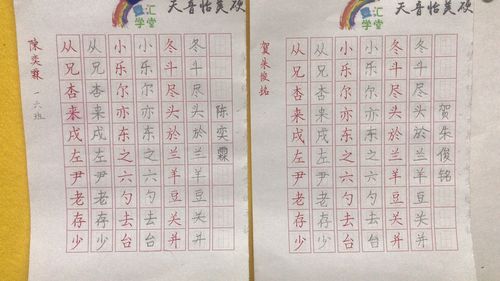 汇
学堂
天音怡美硬
陈奕霖 一六班
从兄杏来戌左尹老存少
从兄杏来戌左尹老存少
小乐尔亦东之六勺去台
小乐尔亦东之六勺去台
冬斗尽头於兰羊豆关并
冬斗尽头於兰羊豆关并
陈奕霖
汇
学堂
天音怡美硬
贺朱俊铭
从兄杏来戌左尹老存少
从兄杏来戌左尹老存少
小乐尔亦东之六勺去台
小乐尔亦东之六勺去台
冬斗尽头於兰羊豆关并
冬斗尽头於兰羊豆关并
贺朱俊铭